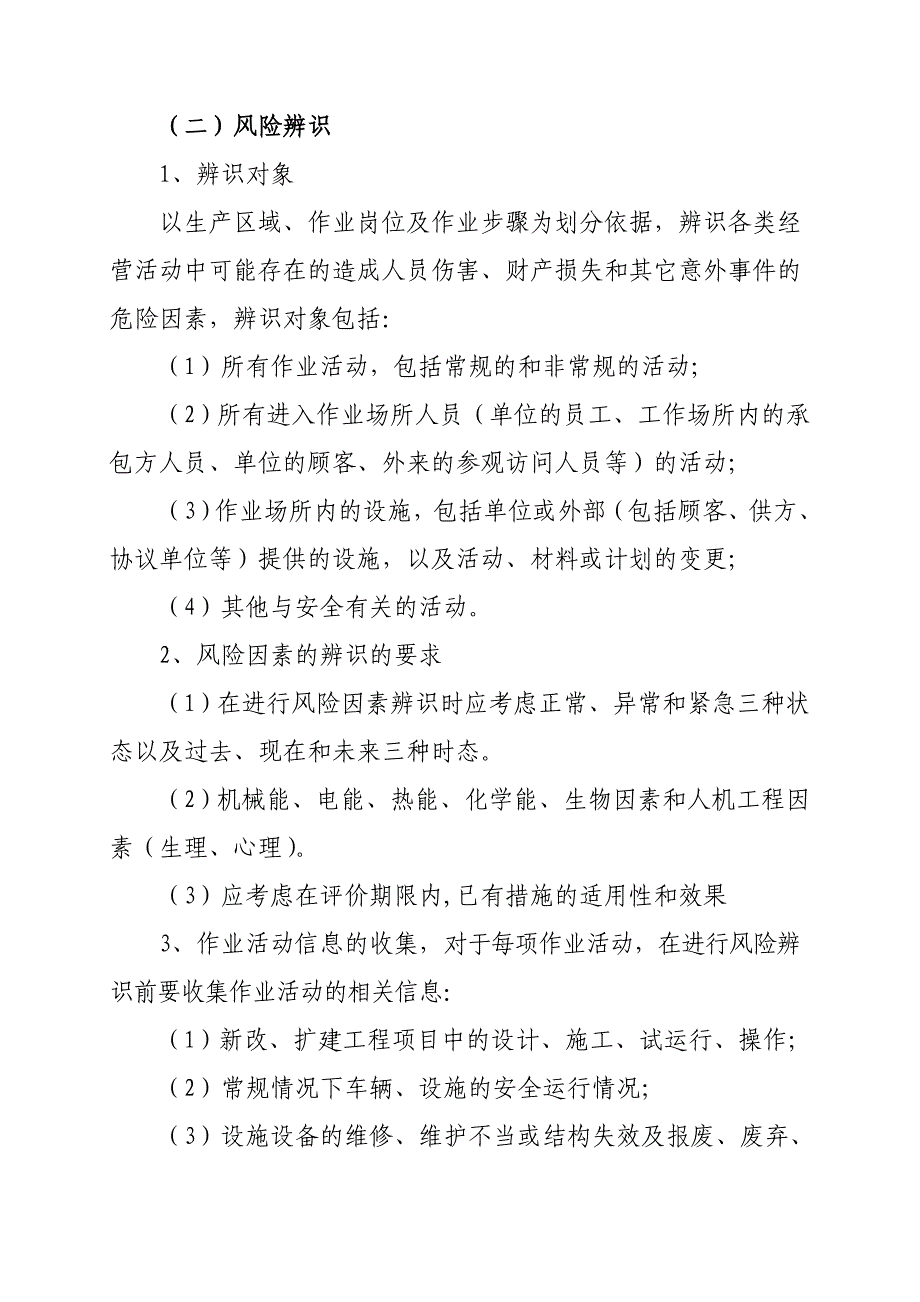 （二）风险辨识
1、辨识对象
以生产区域、作业岗位及作业步骤为划分依据，辨识各类经
营活动中可能存在的造成人员伤害、财产损失和其它意外事件的
危险因素，辨识对象包括：
（1）所有作业活动，包括常规的和非常规的活动；
（2）所有进入作业场所人员（单位的员工、工作场所内的承
包方人员、单位的顾客、外来的参观访问人员等）的活动；
（3）作业场所内的设施，包括单位或外部（包括顾客、供方、
协议单位等）提供的设施，以及活动、材料或计划的变更；
（4）其他与安全有关的活动。
2、风险因素的辨识的要求
（1）在进行风险因素辨识时应考虑正常、异常和紧急三种状
态以及过去、现在和未来三种时态。
（2）机械能、电能、热能、化学能、生物因素和人机工程因
素（生理、心理）。
（3）应考虑在评价期限内,已有措施的适用性和效果
3、作业活动信息的收集，对于每项作业活动，在进行风险辨
识前要收集作业活动的相关信息：
（1）新改、扩建工程项目中的设计、施工、试运行、操作；
（2）常规情况下车辆、设施的安全运行情况；
（3）设施设备的维修、维护不当或结构失效及报废、废弃、